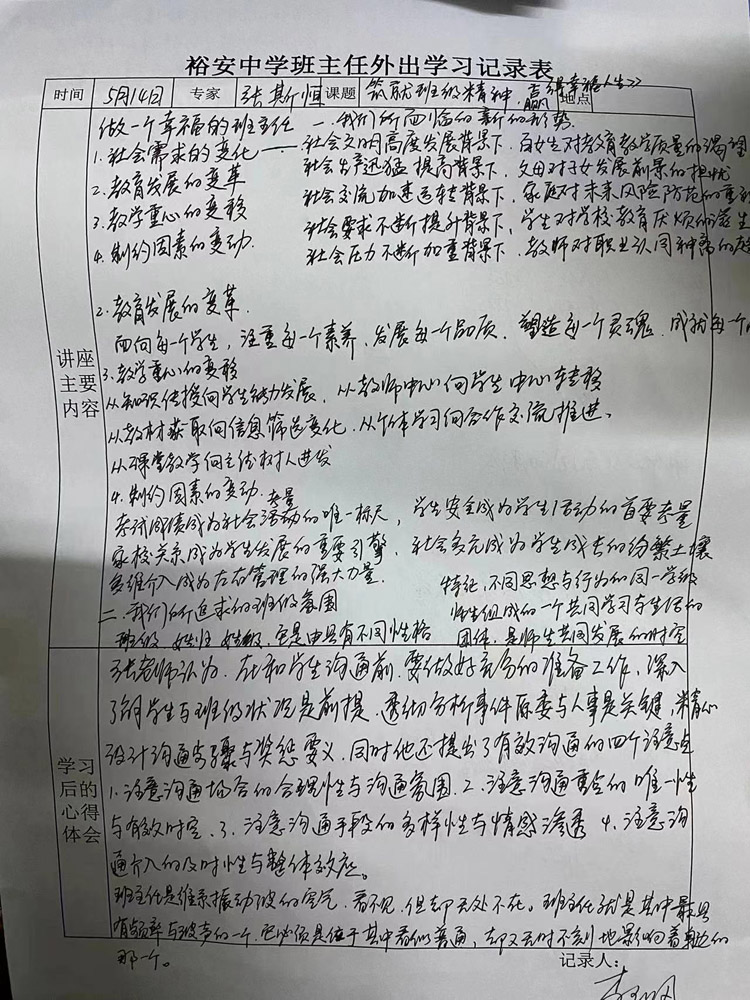 裕安中学班主任外出学习记录表
时间 5月14日 专家 张斯恒 课题 筑就班级精神，赢得幸福人生>> 地点
做一个幸福的班主任 一.我们所面临的新的形势
1.社会需求的变化 —— 社会文明高度发展背景下，百姓对教育教学质量的渴望
2.教育发展的变革 社会生产迅猛提高背景下，父母对子女发展前景的担忧
3.教学重心的变移 社会交流加速运转背景下，家庭对未来风险防范的重
4.制约因素的变动. 社会要求不断提升背景下，学生对学校教育厌烦的滋生
社会压力不断加重背景下，教师对职业认同神离的
2.教育发展的变革.
面向每一个学生，注重每一个素养、发展每一个品质、塑造每一个灵魂，成就每一个
3.教学重心的变移
从知识传授向学生能力发展，从教师中心向学生中心转移
从教材获取向信息筛选变化、从个体学习向合作交流推进。
从课堂教学向立德树人进发
4.制约因素的变动.
考试成绩成为社会活动的唯一标尺，学生安全成为学生活动的首要考量
家校关系成为学生发展的重要引擎、社会多元成为学生成长的纷繁土壤
多维介入成为左右管理的强大力量.
二.我们所追求的班级氛围
班级、姓班、它是由具有不同性格
特征，不同思想与行为的同一学级
师生组成的一个共同学习与生活的
团体，是师生共同发展的时空
讲座主要内容
张老师认为，在和学生沟通前，要做好充分的准备工作，深入
了解学生与班级状况是前提，透彻分析事件原委与人事是关键，精心
设计沟通步骤与奖惩要义，同时他还提出了有效沟通的四个注意点
1.注意沟通场合的合理性与沟通氛围.2.注意沟通重点的唯一性
与有效时空.3.注意沟通手段的多样性与情感渗透 4.注意沟
通介入的及时性与整体效应。
班主任是维系振动波的空气，看不见，但却无处不在。班主任就是其中最具
有频率与波声的一个，它必须是位于其中看似普通，却又无时不刻地影响着周边的
那一个。
学习后的心得体会
记录人：